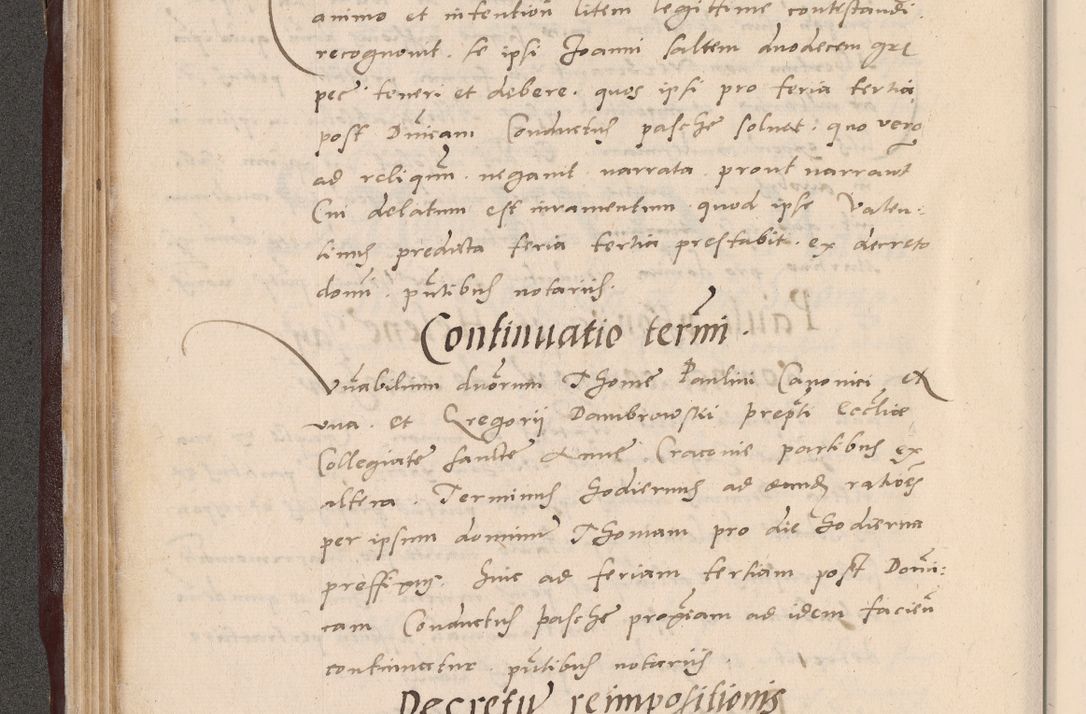 animo et intention̄ litem legittime contestandi
recognovit se ipsi Joanni saltem duodecem gr̄
pec̄ teneri et debere. quos ipsi pro feria tertia
post Dn̄icam Conductus pasche solvet. quo vero
ad reliquū. negavit narrata prout narrant̄
Cui delatum est iuramentum quod ipse Valen:
tinus predicta feria tertia prestabit. ex decreto
domī. pn̄tibus notariis.
Continuatio termī.
Vn̄abilium duōrum Thome Paulini Canonici ex
una. et Gregorij Dambrowski prep̄ti Eccl̄ie
Collegiate sancte Anne Cracovie partibus ex
altera. Terminus hodiernus ad dand ratiōes
per ipsum dominū Thomam pro die hodierna
preffixus. hinc ad feriam tertiam post Domī:
cam Conductus pasche prox̄iam ad idem facieñ
continuatur. pn̄tibus notariis.
Decretū reimpositionis